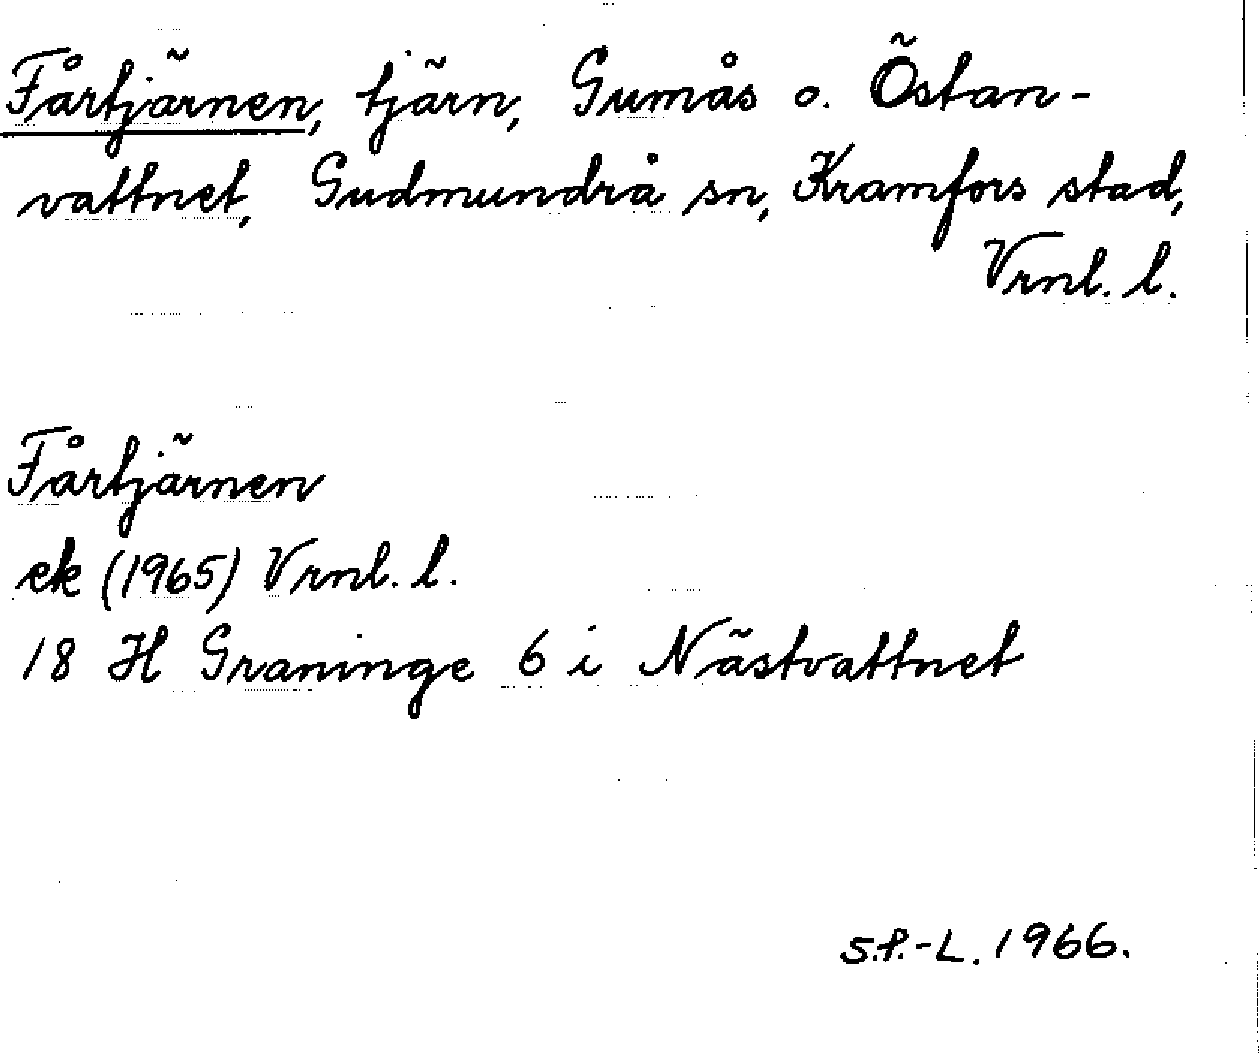 Fårtjärnen, tjärn, Gumås o. Östan-
vattnet, Gudmundrå sn, Kramfors stad,
Vrnl. l.
Fårtjärnen
ek (1965) Vrnl. l.
18 H Graninge 6 i Nästvattnet
S.P.-L. 1966.